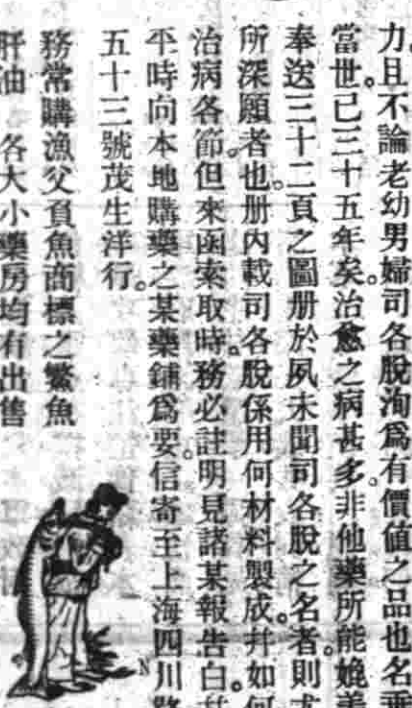 力。且不論老幼男婦司各脫洵爲有價値之品也名垂
當世。已三十五年矣。治愈之病甚多。非他藥所能媲美
奉送三十二頁之圖册於夙未聞司各脫之名者。則
所深願者也。册内載司各脫係用何材料製成。幷如何
治病各節。但來函索取時。務必註明見諸某報告白。幷
平時向本地購藥之某藥鋪爲要。信寄至上海四川路
五十三號茂生洋行。
務常購漁父負魚商標之鰵魚
肝油 各大小藥房均有出售
N